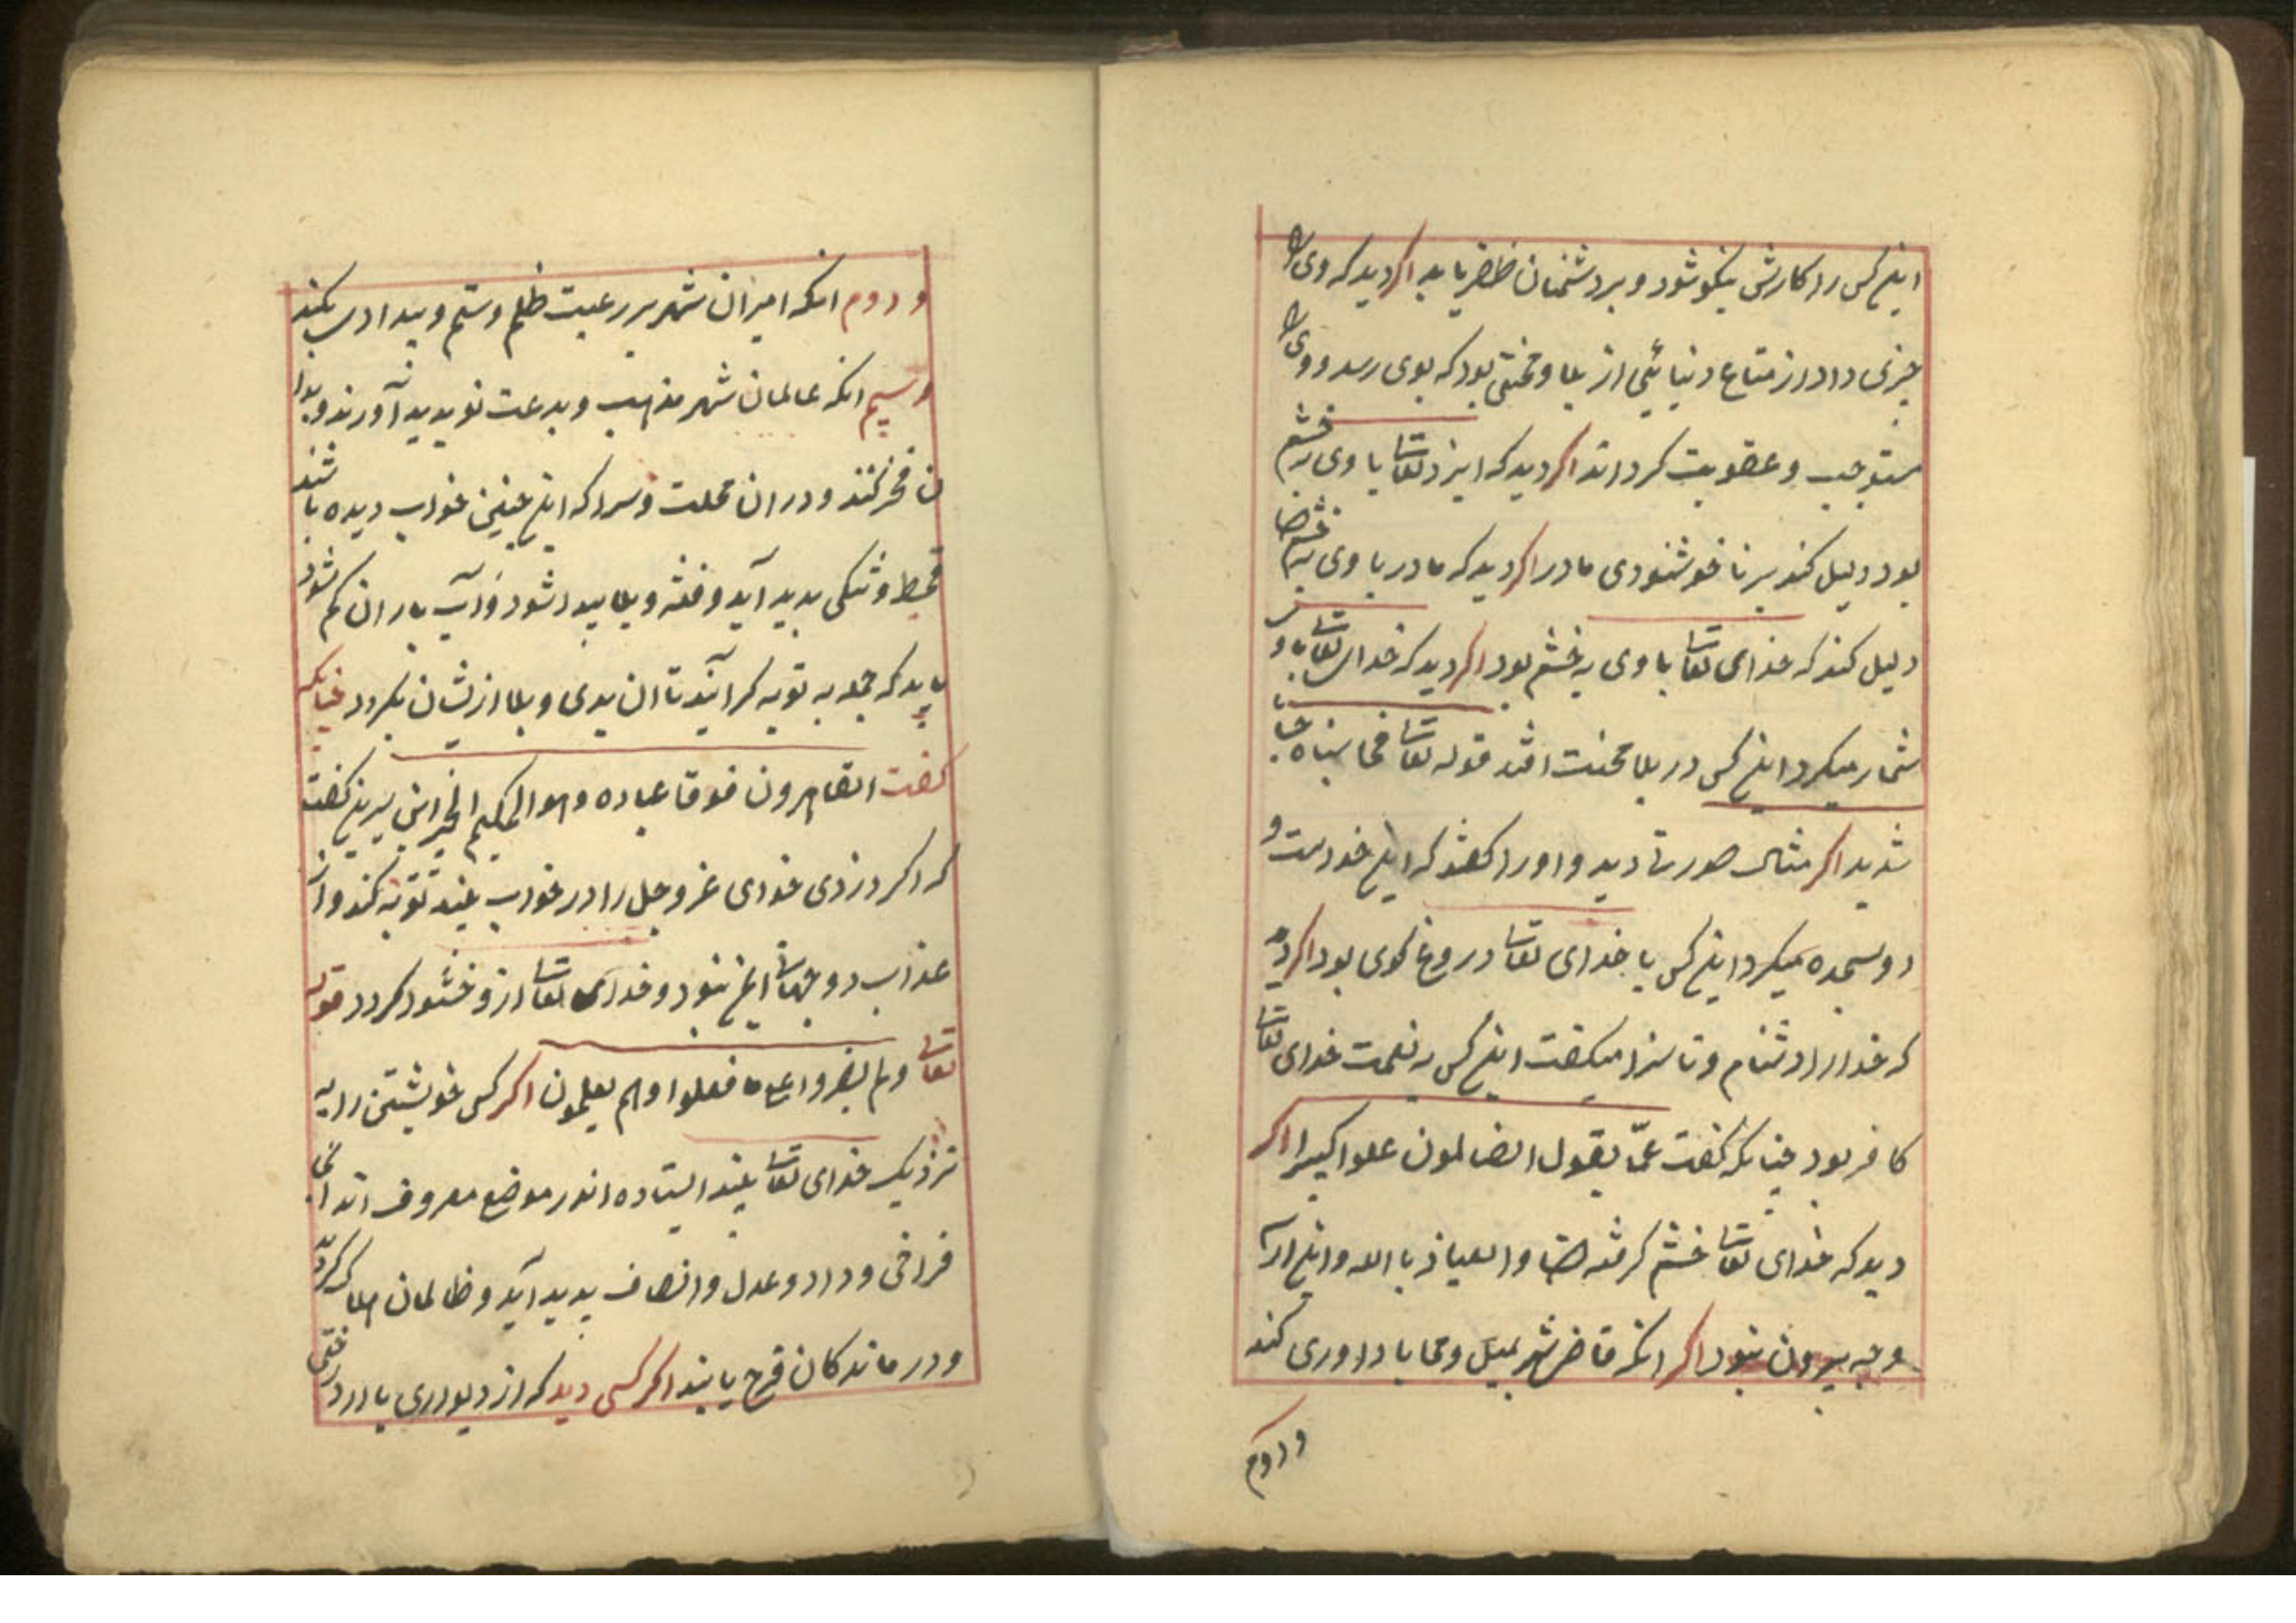 این کس را کارش نیکو شود و بر دشمنان ظفر یابد اکر دید که ویرا
چیزی داد از متاع دنیائی از بلا و محنتی بود که بوی رسد و ویرا
مستوجب و عقوبت کرداند اکر دید که ایزد تعالی با وی به خشم
بود دلیل کند بر نا خوشنودی مادر اکر دید که مادر با وی به خشم
دلیل کند که خدای تعالی با وی به خشم بود اکر دید که خدای تعالی با و
شمار میکرد این کس در بلا محنت افتد قوله تعالی فحاسبناه حسابا
شدید اکر مثال صورتی دید و او را کفتند که این خداست و
او سجده میکرد این کس با خدای تعالی دروغ کوی بود اکر دید
که خدا را دشنام و ناسزا میکفت این کس به نعمت خدای تعالی
کافر بود چنانکه کفت عمّا یقول الضالمون علوا کبیرا اکر
دید که خدای تعالی خشم کرفته و العیاذ بالله و این از سه
وجه بیرون نبود اکر انکه قاضی شهر بمیل و محابا داوری کند
و دوم
و دوم انکه امیران شهر بر رعیت ظلم و ستم و بیدادی بکنند
و سیم انکه عالمان شهر مذهب و بدعت نو پدید آورند و بدا
ن فخر کنند و در ان محلت و سرا که این چنین خواب دیده باشند
قحط و تنکی پدید آید و فتنه و بلا پیدا شود و آب باران کم شود
باید که جمله به توبه کرایند تا ان بدی و بلا ازیشان بکردد چنانکه
کفت القاهرون فوقا عباده و هو الحکیم الخبیر ابن سیرین کفت
که اکر دزدی خدای عز و جل را در خواب بیند توبه کند و از
عذاب دو جهانی ایمن بنود و خدای تعالی ازو خشنود کردد قوله
تعالی و لم یصروا علی ما فعلوا و هم یعلمون اکر کس خویشتن را به
نزدیک خدای تعالی بیند ایستاده اندر موضع معروف اندا نجا
فراخی و داد و عدل و انصاف پدید آید و ظالمان هلاک کردند
و درماندکان فرج یابند اکر کسی دید که از دیواری یا درختی